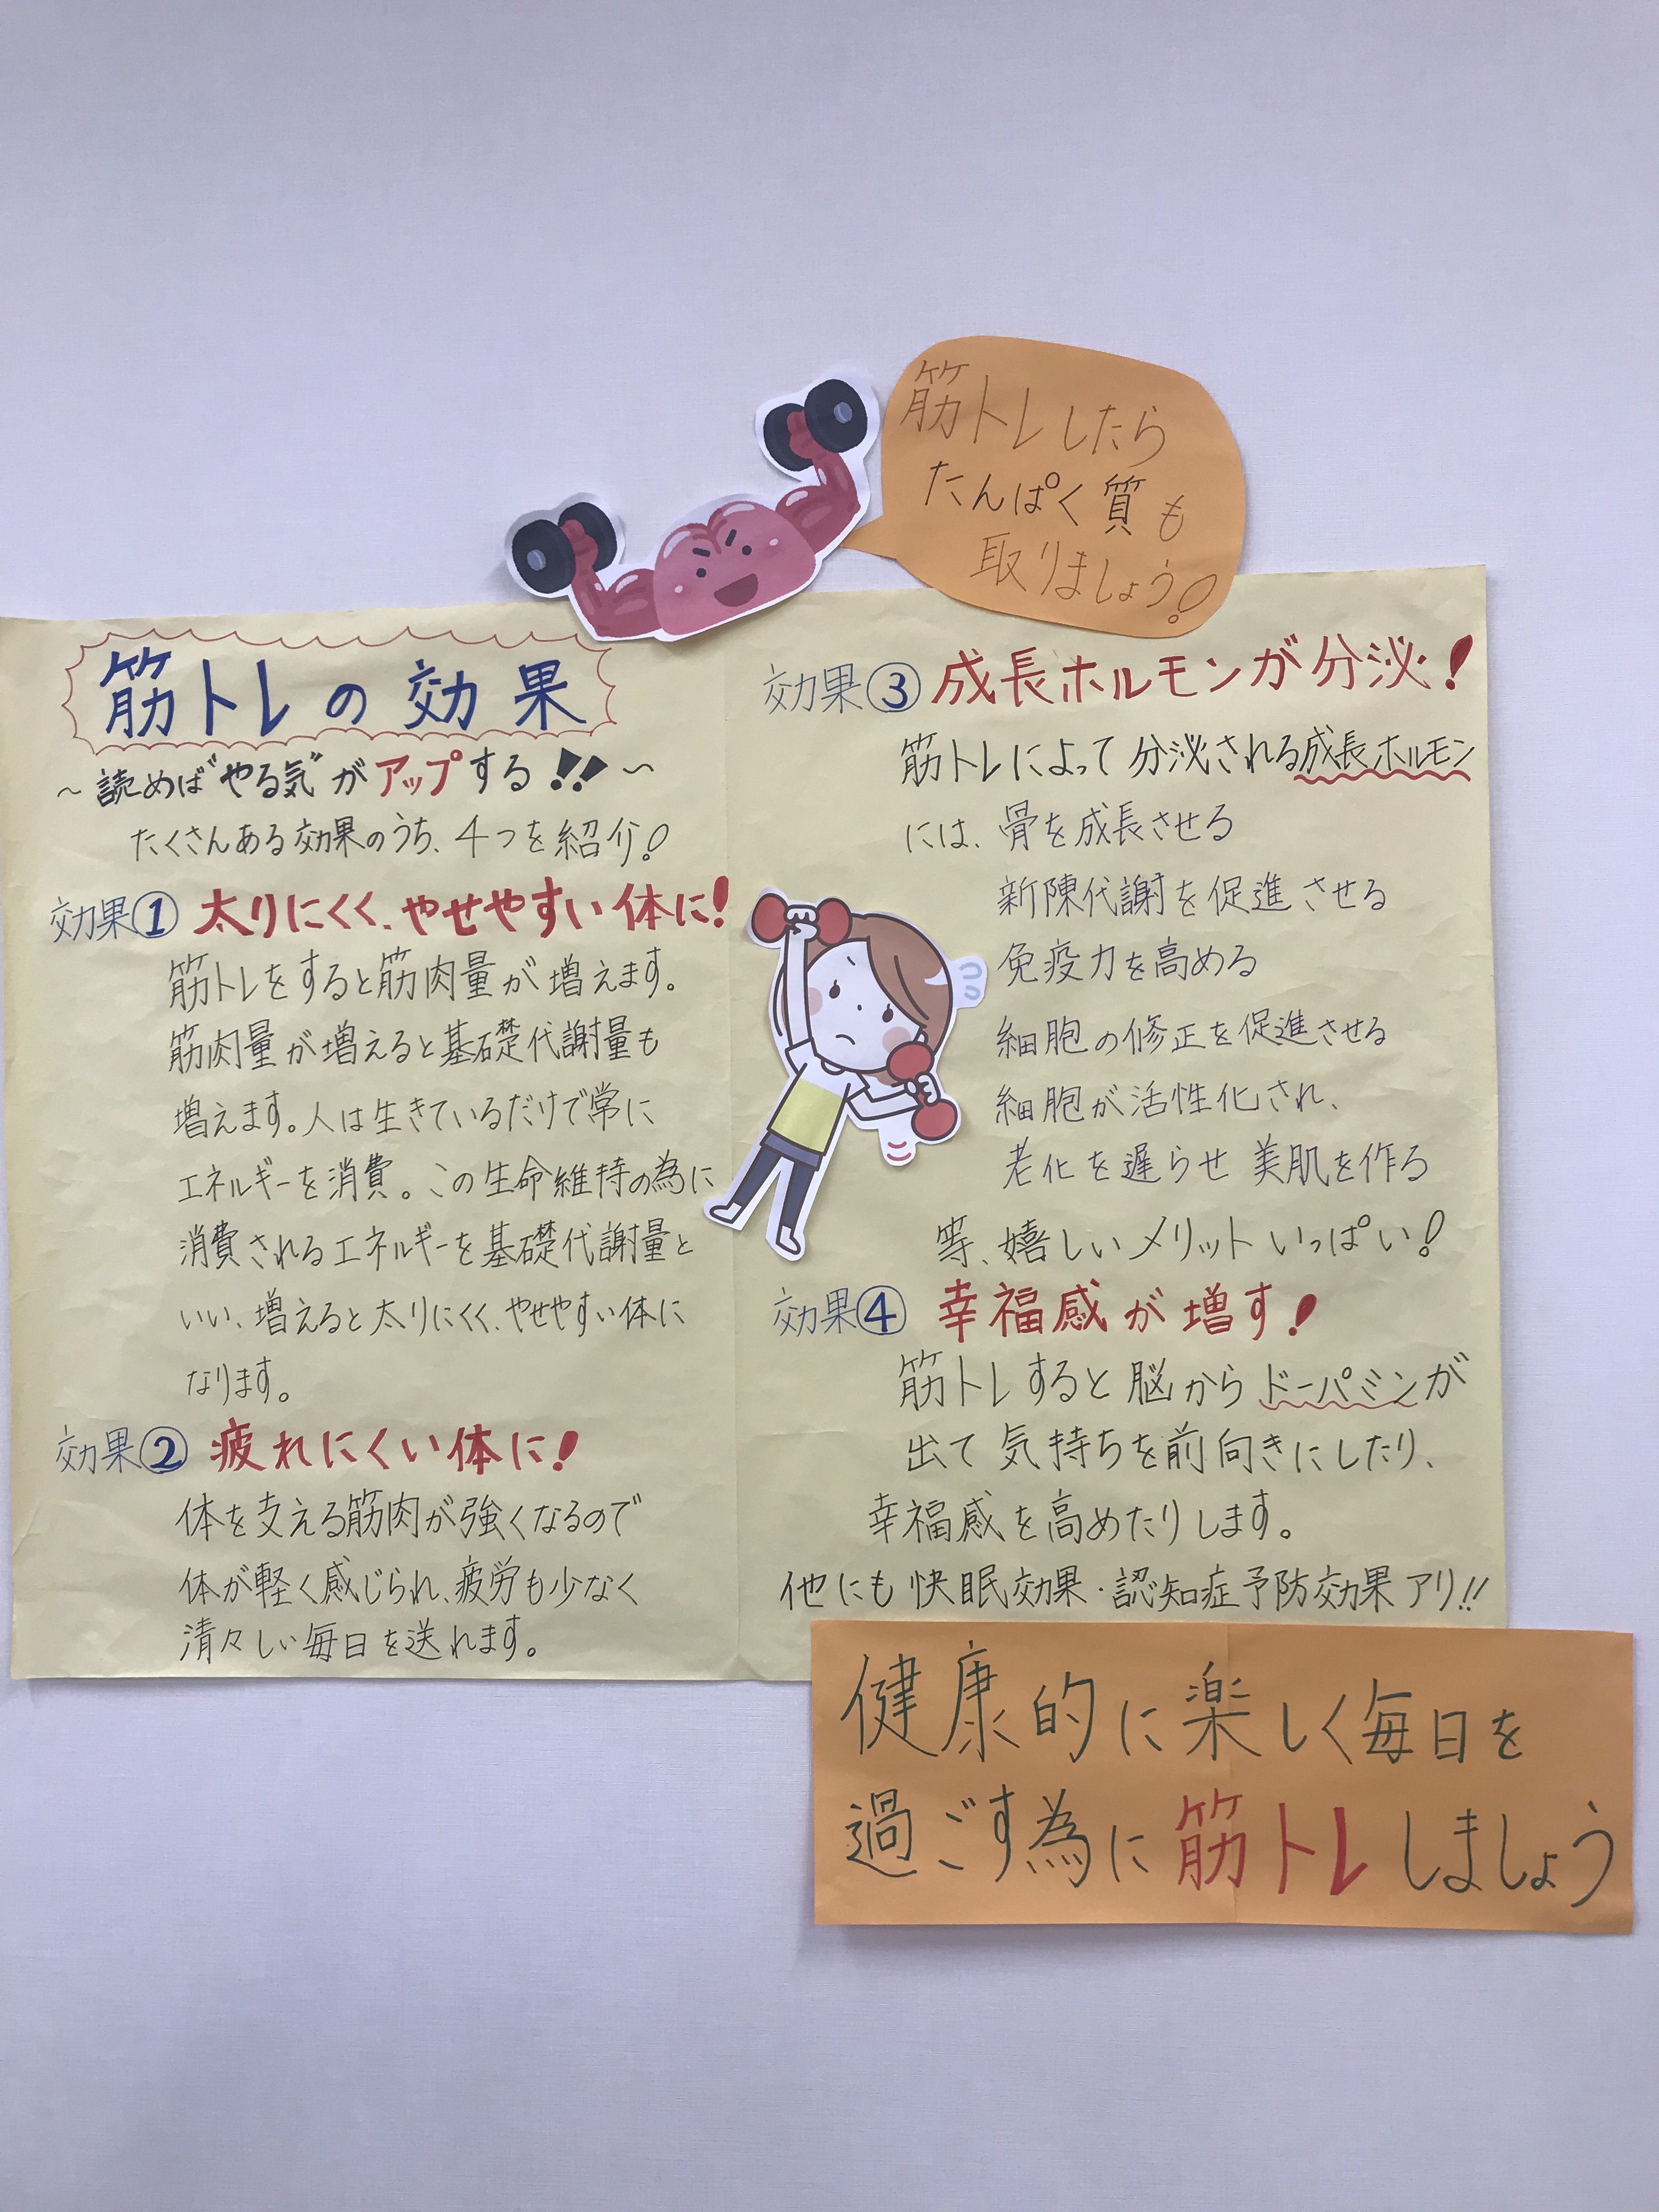 筋トレしたら
たんぱく質も
取りましょう!
筋トレの効果
~読めば"やる気"がアップする!!~
たくさんある効果のうち、4つを紹介!
効果① 太りにくく、やせやすい体に!
筋トレをすると筋肉量が増えます。
筋肉量が増えると基礎代謝量も
増えます。人は生きているだけで常に
エネルギーを消費。この生命維持の為に
消費されるエネルギーを基礎代謝量と
いい、増えると太りにくく、やせやすい体に
なります。
効果② 疲れにくい体に!
体を支える筋肉が強くなるので
体が軽く感じられ、疲労も少なく
清々しい毎日を送れます。
効果③ 成長ホルモンが分泌!
筋トレによって分泌される成長ホルモン
には、骨を成長させる
新陳代謝を促進させる
免疫力を高める
細胞の修正を促進させる
細胞が活性化され、
老化を遅らせ美肌を作る
等、嬉しいメリットいっぱい!
効果④ 幸福感が増す!
筋トレすると脳からドーパミンが
出て気持ちを前向きにしたり、
幸福感を高めたりします。
他にも快眠効果・認知症予防効果アリ!!
健康的に楽しく毎日を
過ごす為に筋トレしましょう